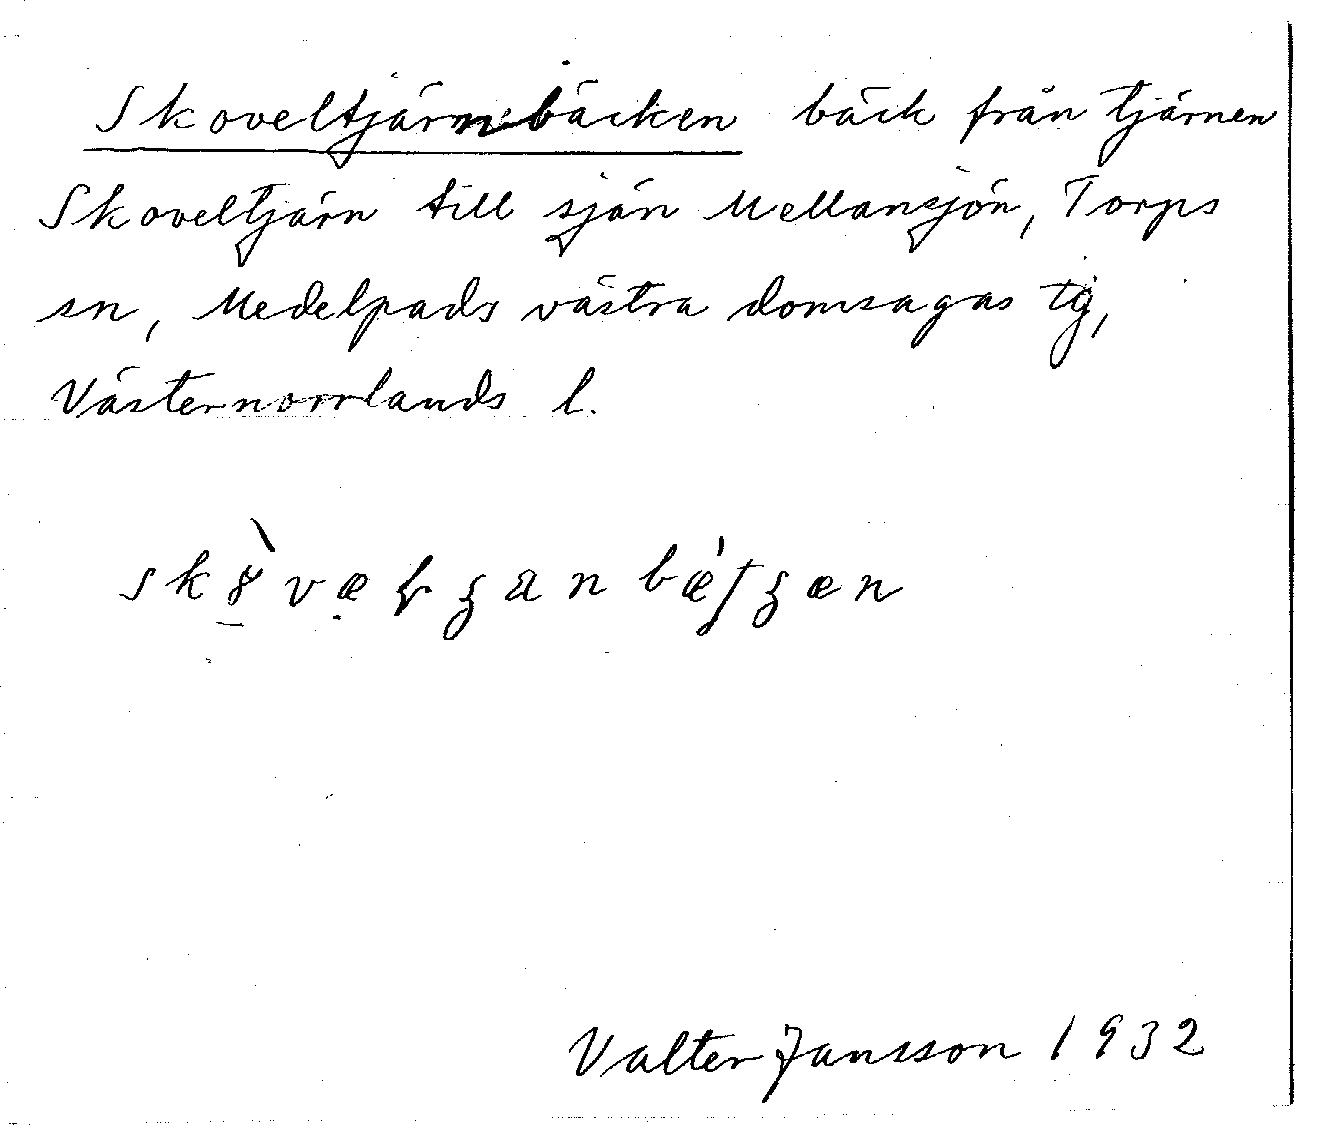 Skoveltjärnbäcken bäck från tjärnen
Skoveltjärn till sjön Mellansjön, Torps
sn, Medelpads västra domsagas tg,
Västernorrlands l.
Valter Jansson 1932